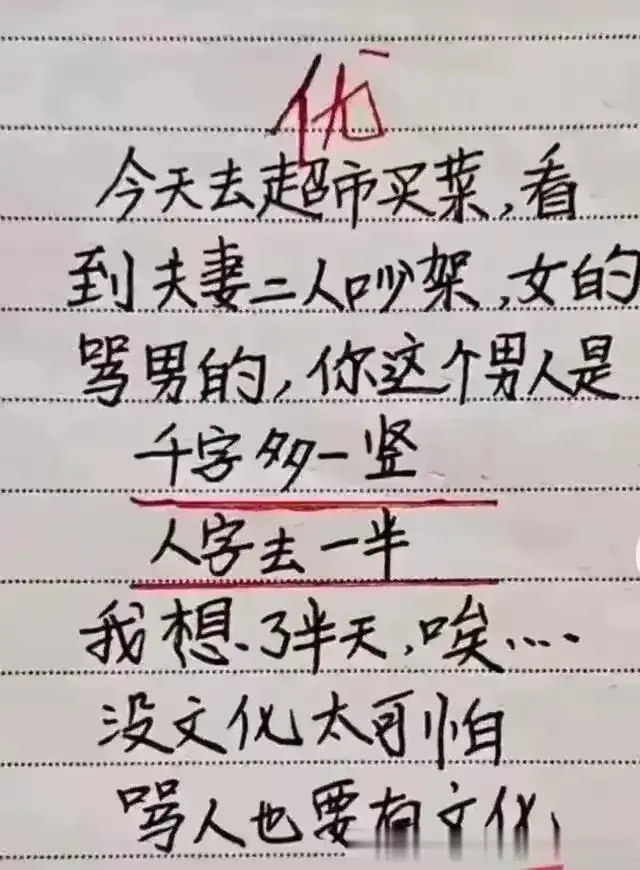 优
今天去超市买菜,看
到夫妻二人吵架,女的
骂男的,你这个男人是
千字多一竖
人字去一半
我想了半天,唉....
没文化太可怕
骂人也要有文化